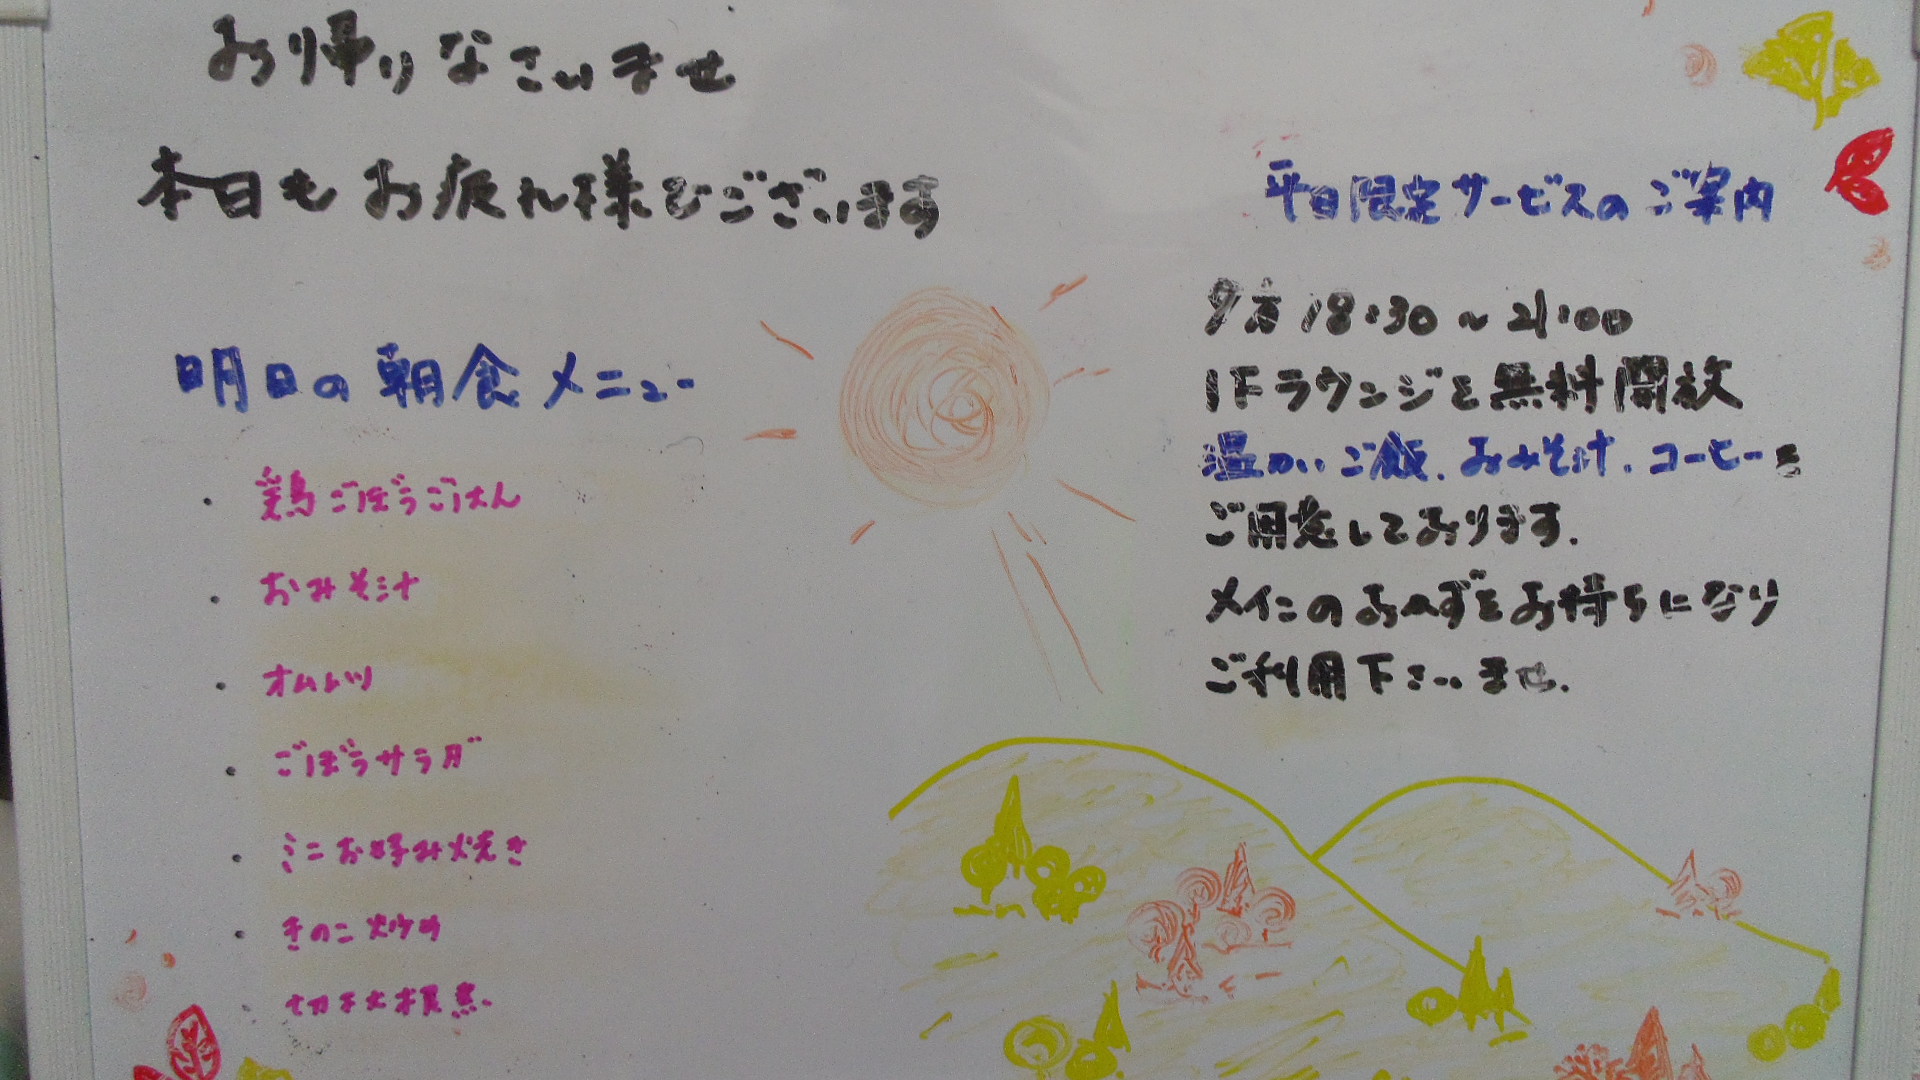 お帰りなさいませ
本日もお疲れ様でございます
明日の朝食メニュー
・鶏ごぼうごはん
・おみそ汁
・オムレツ
・ごぼうサラダ
・ミニお好み焼き
・きのこ炒め
・切干大根煮
平日限定サービスのご案内
夕方 18:30～21:00
1Fラウンジを無料開放
温かいご飯、おみそ汁、コーヒーを
ご用意しております。
メインのおかずをお持ちになり
ご利用下さいませ。